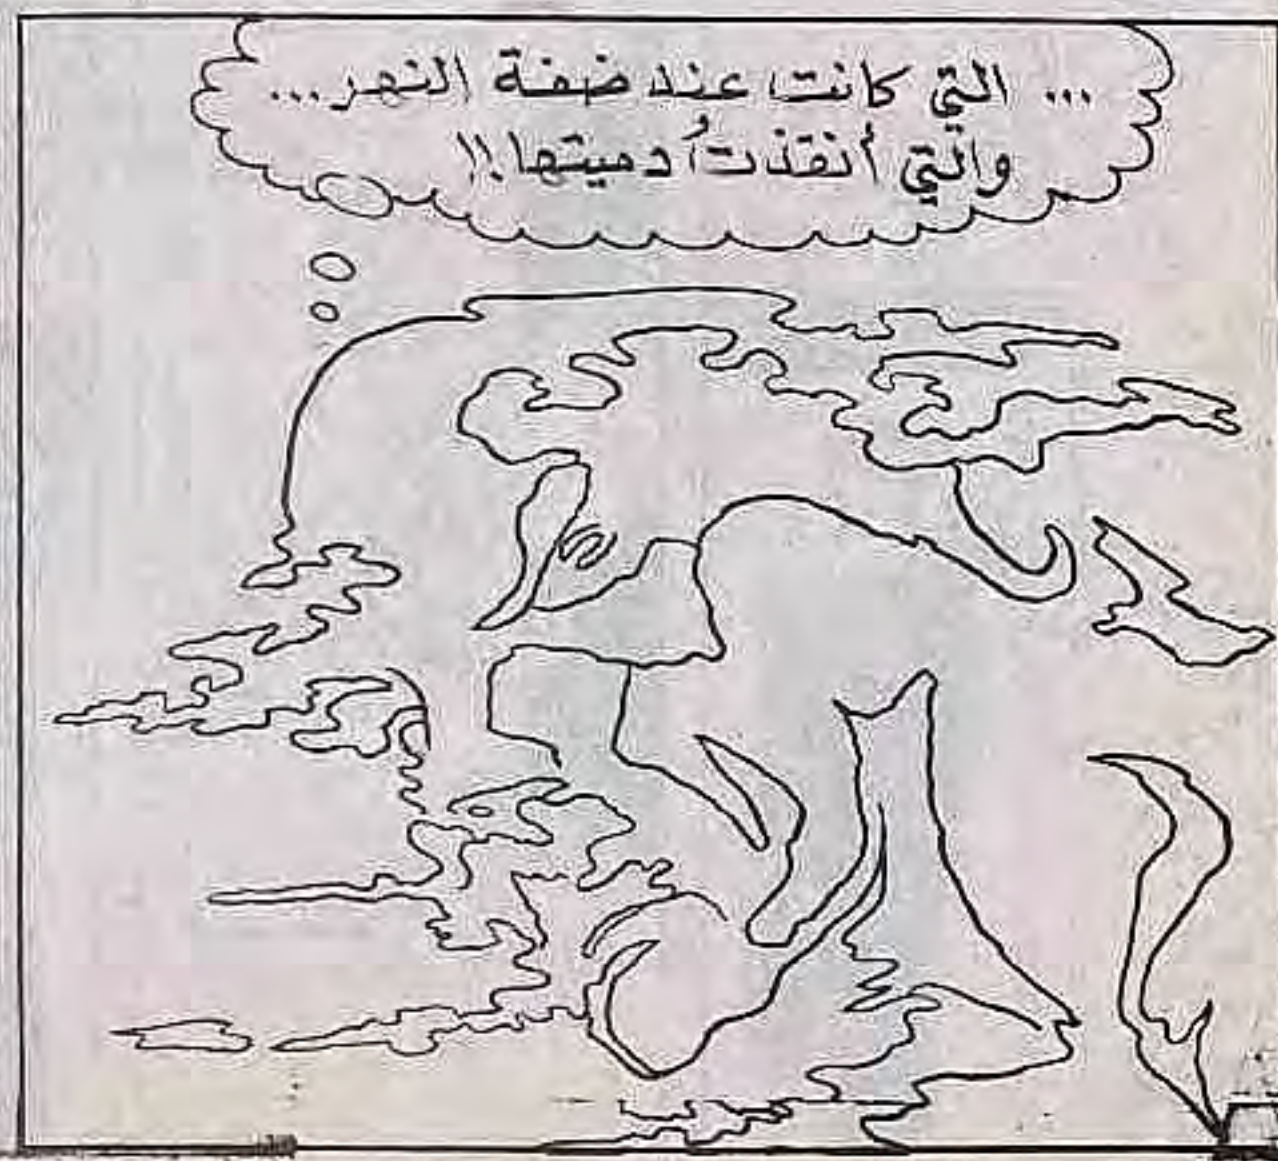 ... التي كانت عند ضفة النهر...
والتي أنقذتُ دميتها!!